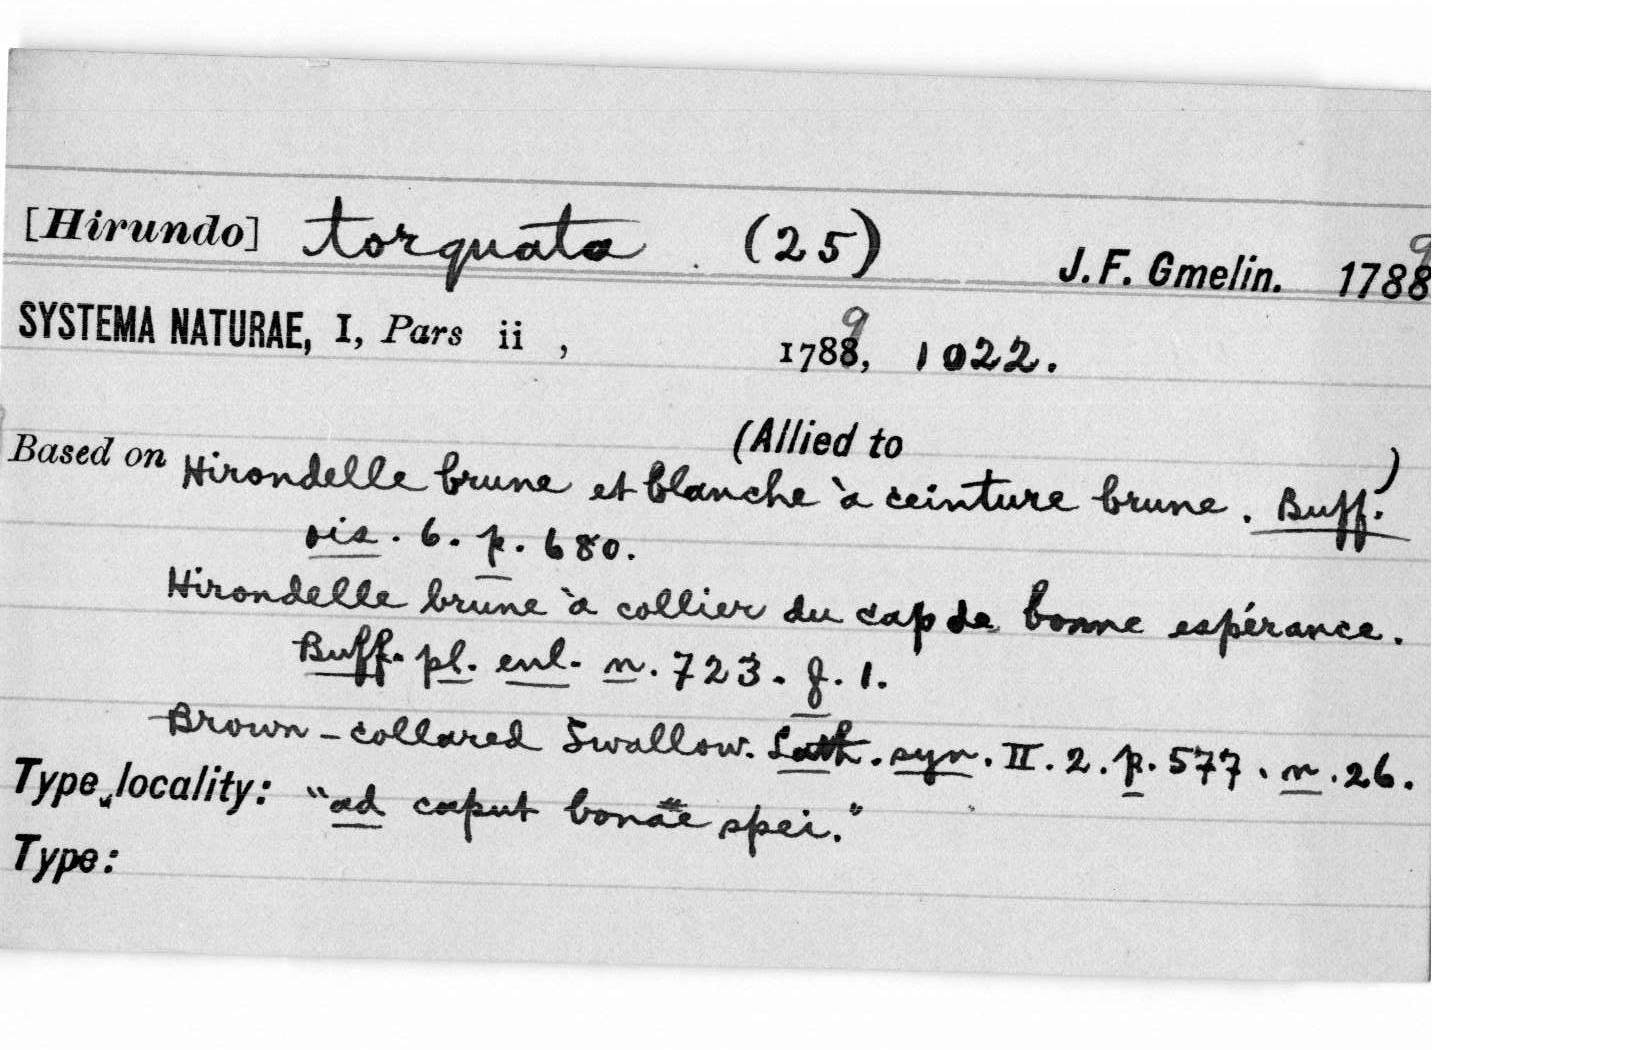 [Hirundo] torquata (25) J. F. Gmelin. 1788 9
SYSTEMA NATURAE, I, Pars ii , 1788 9, 1022.
(Allied to )
Based on Hirondelle brune et blanche à ceinture brune. Buff.
ois. 6. p. 680.
Hirondelle brune à collier du cap de bonne espérance.
Buff. pl. enl. n. 723. f. 1.
Brown-collared Swallow. Lath. syn. II. 2. p. 577. n. 26.
Type locality: "ad caput bonae spei."
Type: